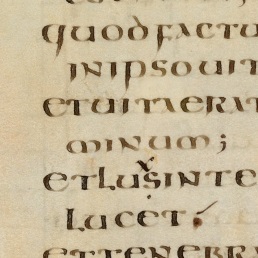 quod factu
in ipso uit
et uita erat
minum;
et lux in te
lucet.
et tenebra